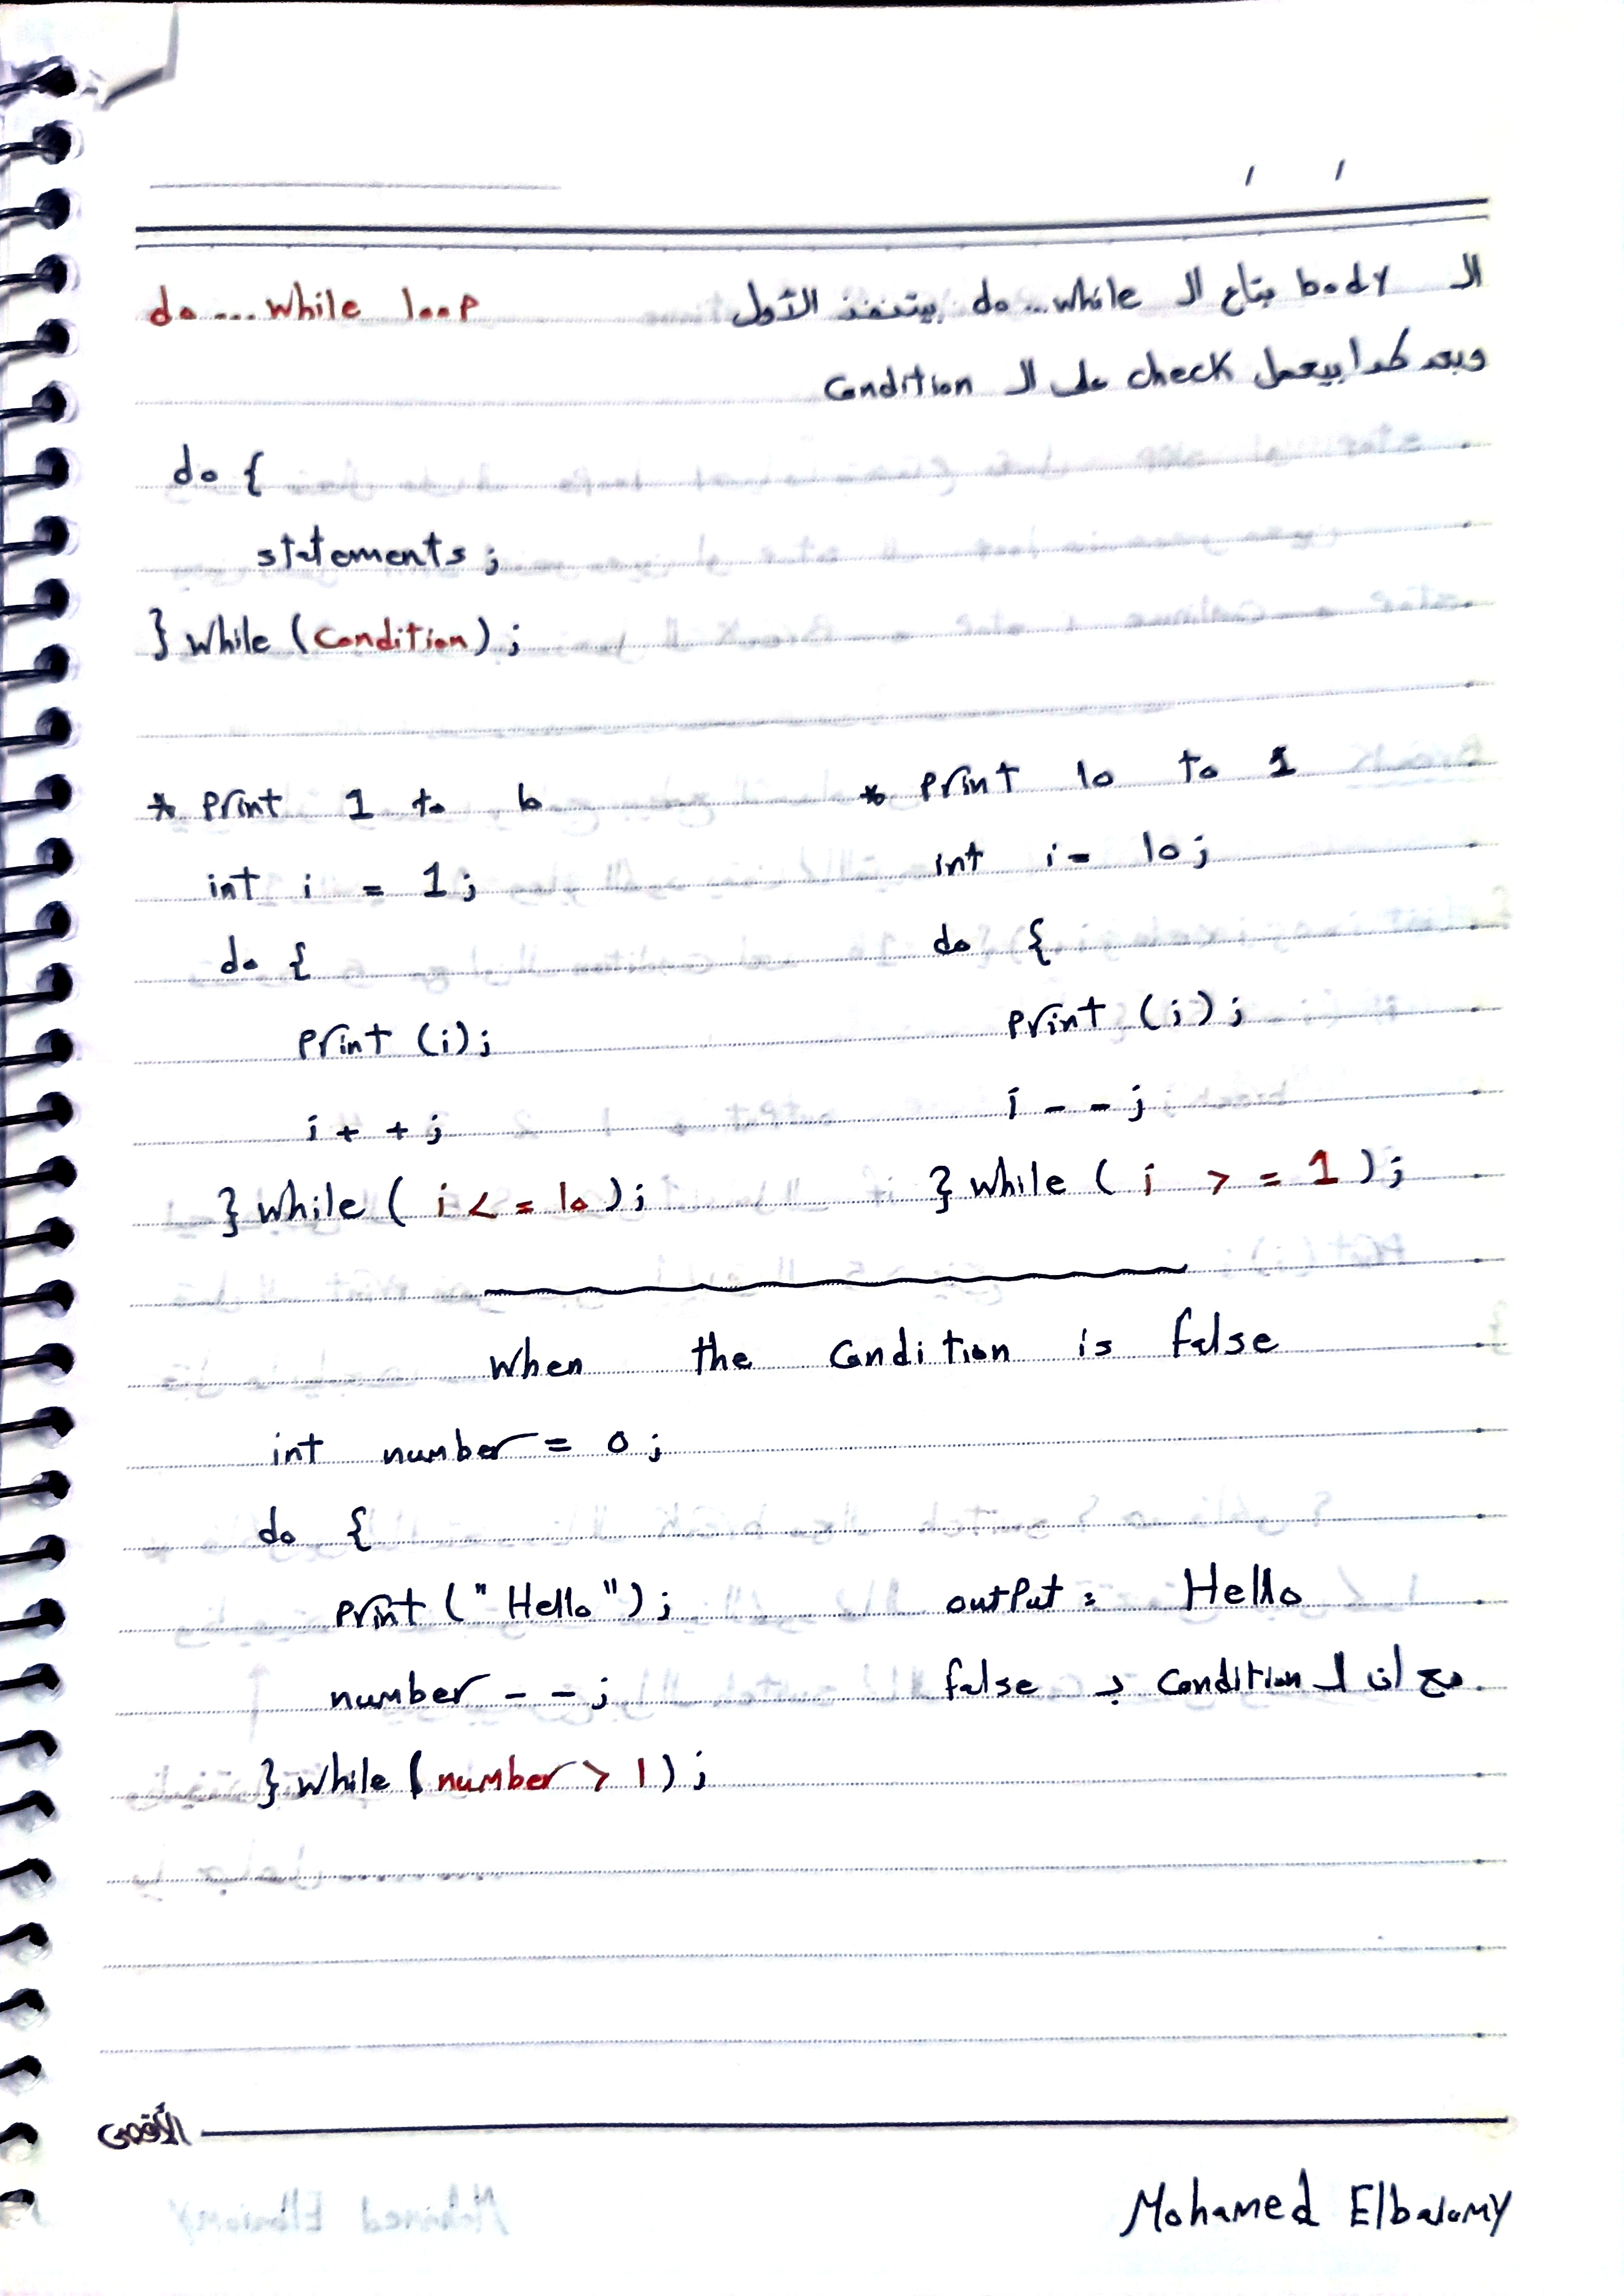 do...while loop
الـ body بتاع الـ do...while بيتنفذ الأول
وبعد كدا بيعمل check على الـ condition
do {
statements;
} while (condition);
* print 1 to 10
int i = 1;
do {
print (i);
i++;
} while ( i <= 10 );
* print 10 to 1
int i = 10;
do {
print (i);
i--;
} while ( i >= 1 );
when the condition is false
int number = 0;
do {
print ("Hello");
number--;
} while (number > 1);
output: Hello
مع ان الـ condition بـ false
الأقصى
Mohamed Elbaiomy